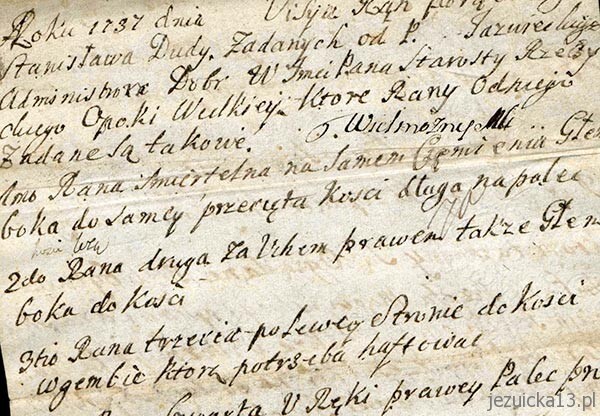 Roku 1737 dnia Visya Ran
Stanisława Dudy, Zadanych od P. Jazureckiego
Administrora Dobr W Jmci Pana Starosty Rzeczy
ckiego Opoki Wielkiey. Ktore Rany Odniego
Zadane są takowe.
1mo Rana Smiertelna na Samem Ciemieniu Głem
boka do Samey przecięta Kosci długa na palec
2do Rana druga Za Uchem prawem także Głem
boka do Kosci
3tio Rana trzecia po lewey Stronie do Kosci
w gembie ktorą potrzeba haftować
U Ręki prawey Palec
jezuicka13.pl